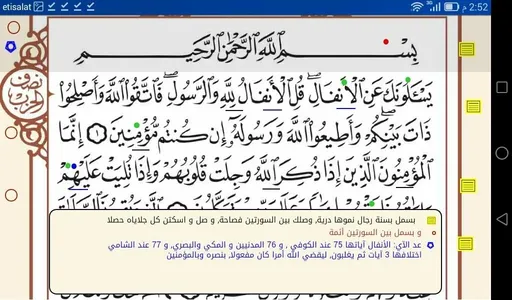 etisalat
2:52 م
بِسْمِ ٱللَّهِ ٱلرَّحْمَٰنِ ٱلرَّحِيمِ
نصف الحزب
يَسْـَٔلُونَكَ عَنِ ٱلْأَنفَالِ ۖ قُلِ ٱلْأَنفَالُ لِلَّهِ وَٱلرَّسُولِ ۖ فَٱتَّقُوا۟ ٱللَّهَ وَأَصْلِحُوا۟
ذَاتَ بَيْنِكُمْ ۖ وَأَطِيعُوا۟ ٱللَّهَ وَرَسُولَهُۥٓ إِن كُنتُم مُّؤْمِنِينَ ١ إِنَّمَا
ٱلْمُؤْمِنُونَ ٱلَّذِينَ إِذَا ذُكِرَ ٱللَّهُ وَجِلَتْ قُلُوبُهُمْ وَإِذَا تُلِيَتْ عَلَيْهِمْ
بسمل بسنة رجال نموها درية, وصلك بين السورتين فصاحة, و صل و اسكتن كل جلاياه حصلا
و بسمل بين السورتين أئمة
عد الآي: الأنفال آياتها 75 عند الكوفي , و 76 المدنيين و المكي والبصري, و 77 عند الشامي
اختلافها 3 آيات ثم يغلبون, ليقضي الله أمرا كان مفعولا, بنصره وبالمؤمنين